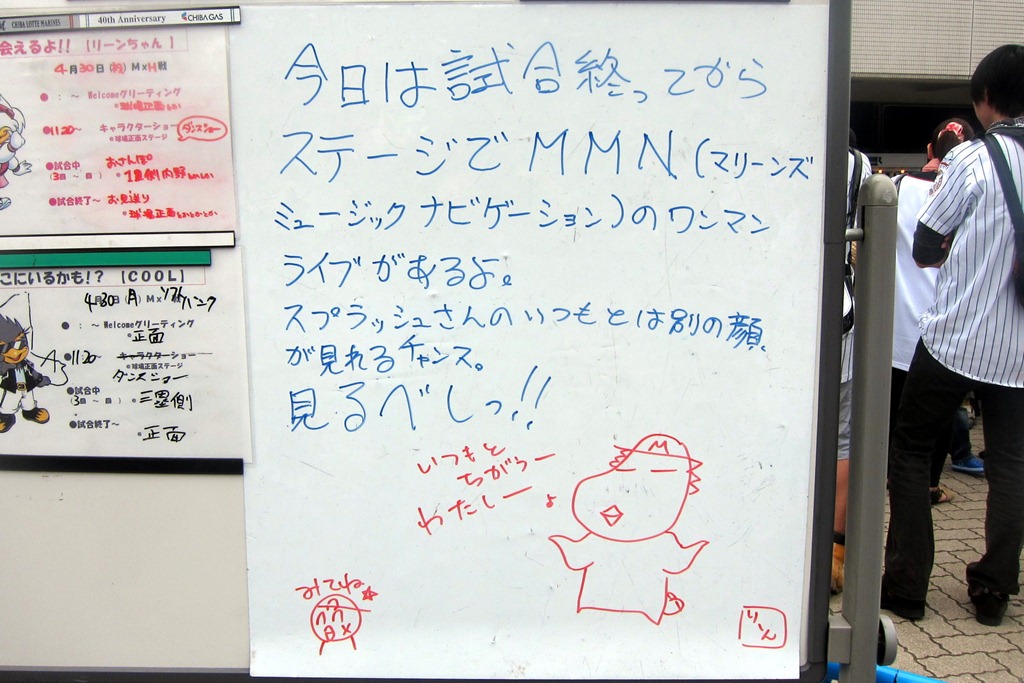 CHIBA LOTTE MARINES 40th Anniversary CHIBA GAS
会えるよ!!【リーンちゃん】
4月30日(祝)MxH戦
●:～Welcomeグリーティング
●11:20～キャラクターショー ダンスショー
＊球場正面ステージ
●試合中 おさんぽ
(3回～回)＊1塁側内野
●試合終了～お見送り
＊球場正面
こにいるかも!?【COOL】
4月30日(月)Mxソフトバンク
●:～Welcomeグリーティング
＊正面
●11:20～キャラクターショー
＊球場正面ステージ
ダンスショー
●試合中
(3回～回)＊三塁側
●試合終了～
＊正面
今日は試合終ってから
ステージでMMN(マリーンズ
ミュージックナビゲーション)のワンマン
ライブがあるよ。
スプラッシュさんのいつもとは別の顔
が見れるチャンス。
見るべしっ!!
いつもと
ちがうー
わたしーよ
M
みてね☆
りーん